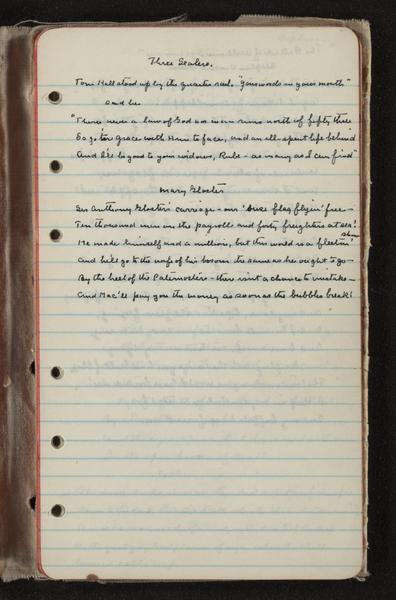 Three Sealers.
Tom Hall stood up by the quarter rail. "Your words in your mouth"
said he
"There's never a law of God or man runs north of fifty three
So go in grace with Him to face, and an ill-spent life behind
And I'll be good to your widows, Rube - as many as I can find"
Mary Gloster
Sir Anthony Gloster's carriage - our 'ouse flag flyin' free -
Ten thousand men on the payroll and forty freighters at sea!
He made himself and a million, but this world is a fleetin' show
And he'll go to the wife of his bosom the same as he ought to go -
By the heel of the Paternosters - there isn't a chance to mistake -
And Mac'll pay you the money as soon as the bubbles break!